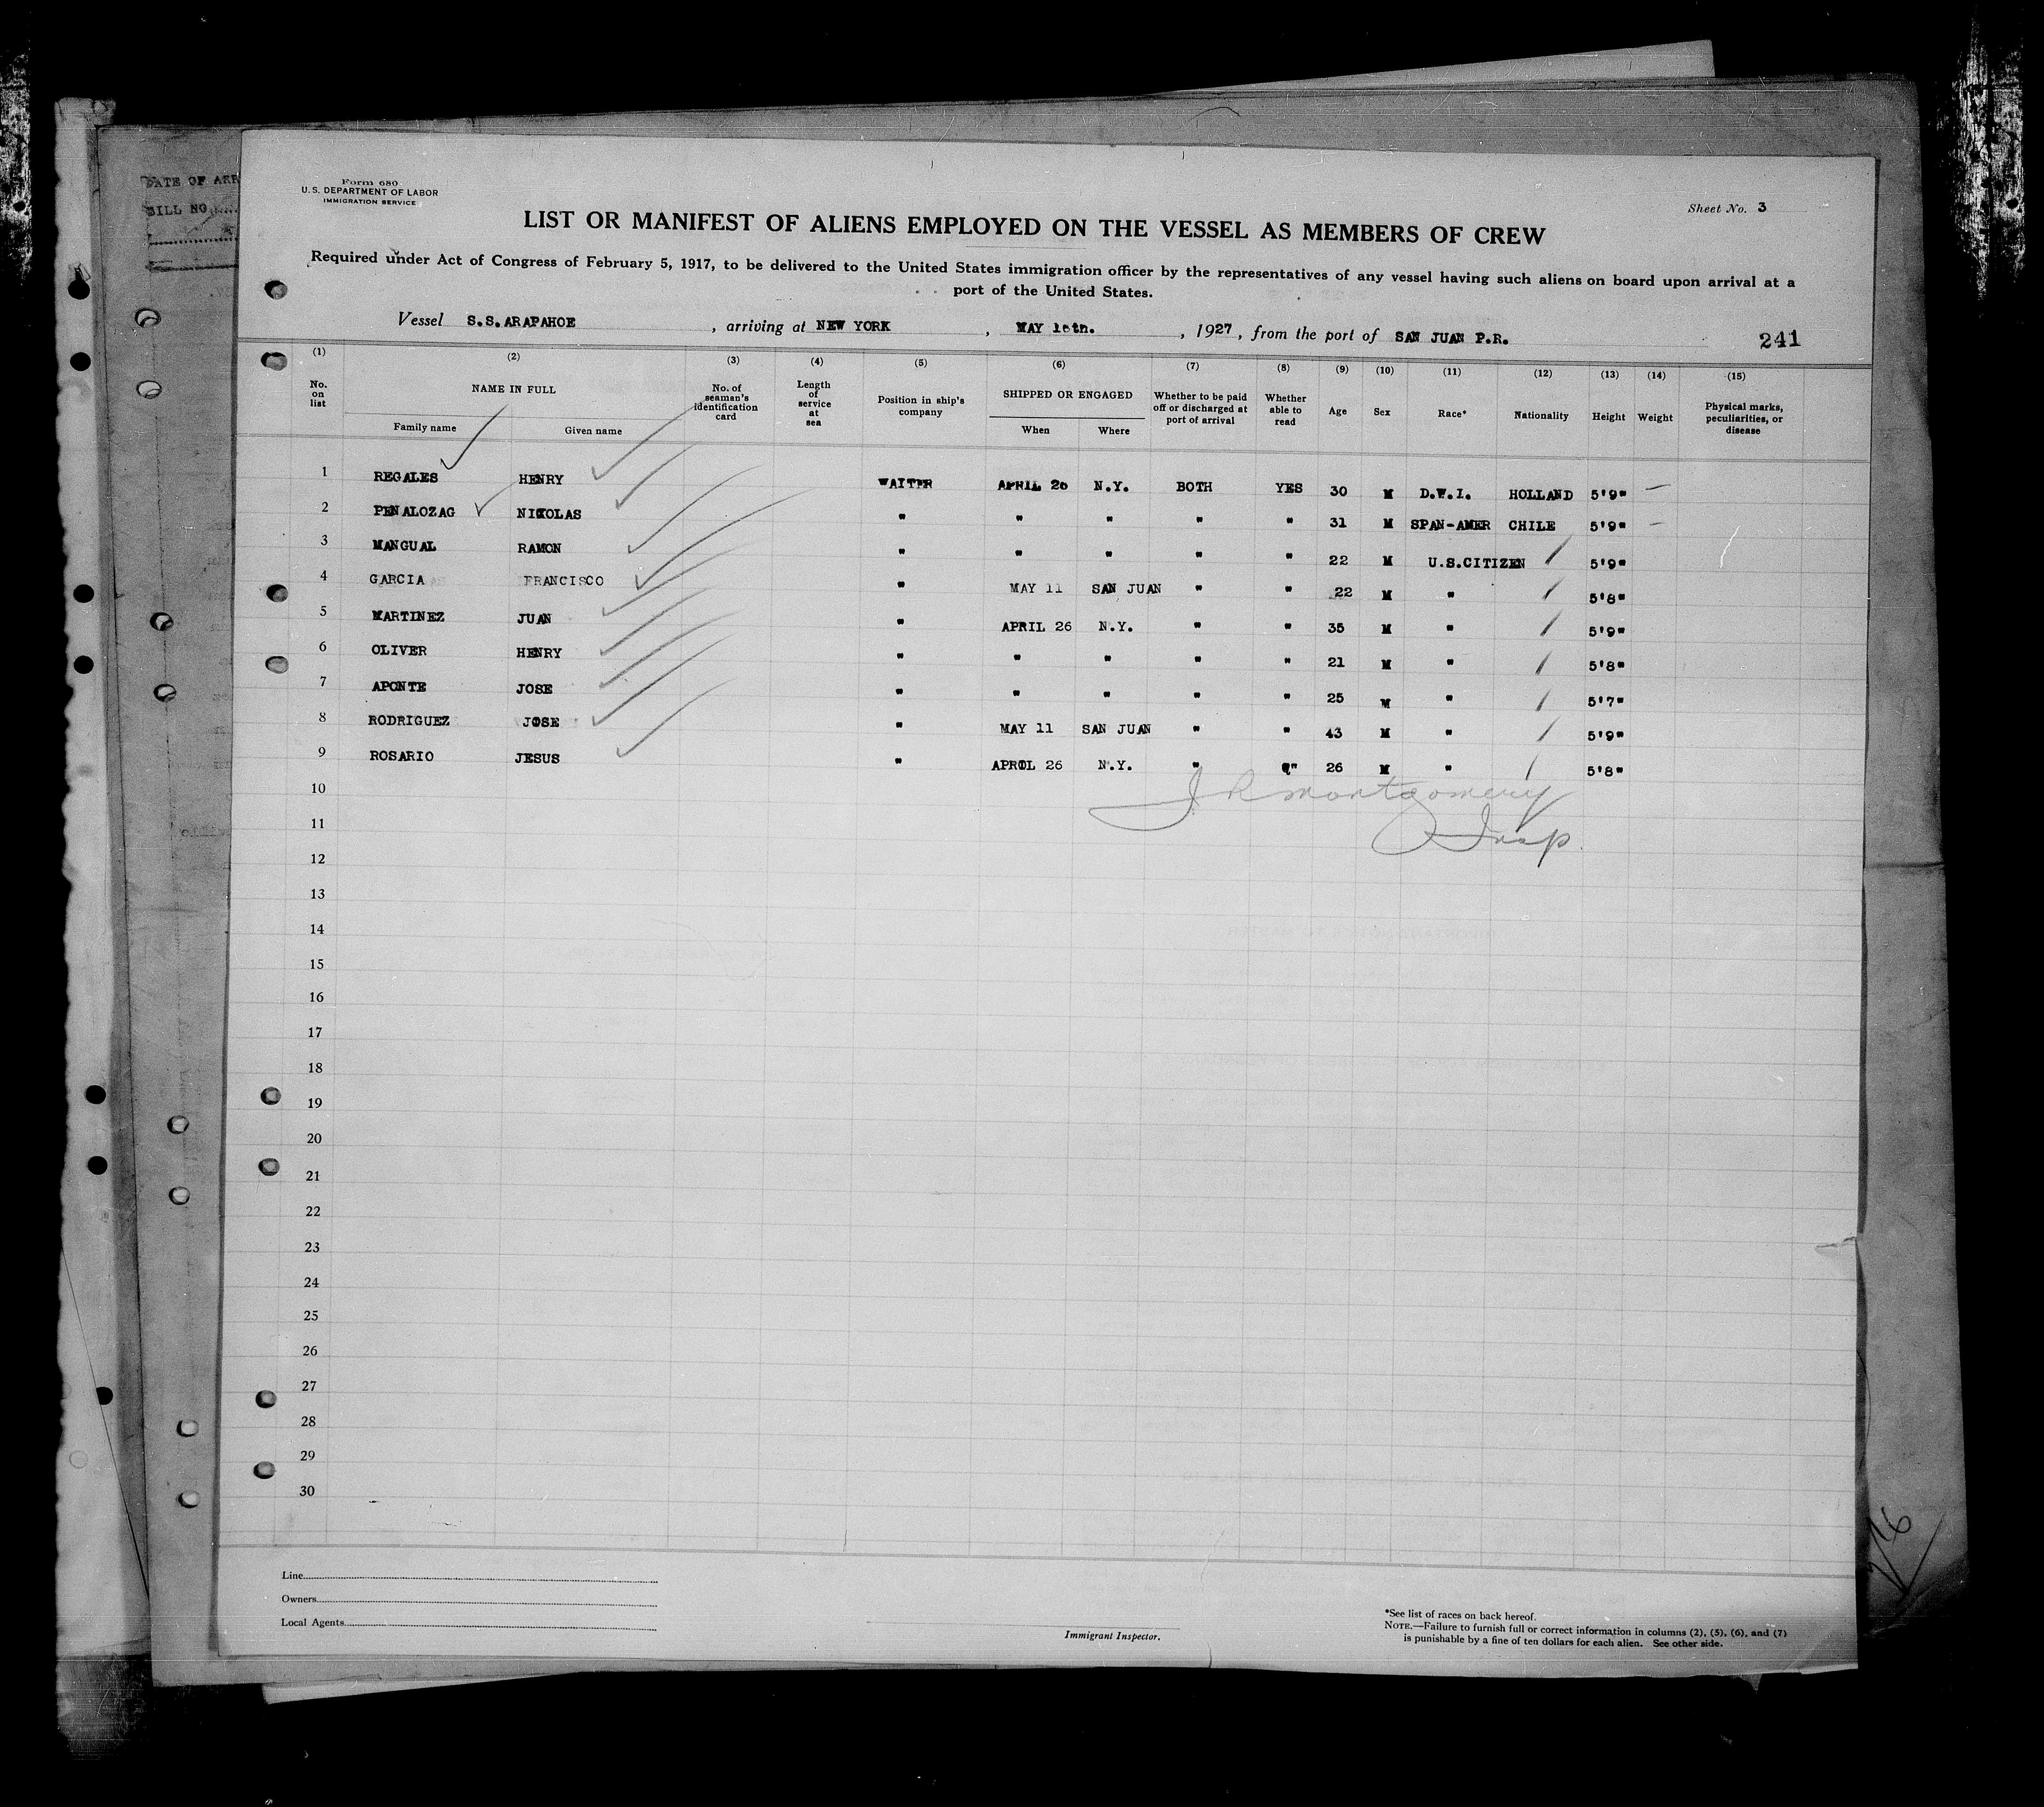 DATE OF ARR
BILL NO
Form 680
U.S. DEPARTMENT OF LABOR
IMMIGRATION SERVICE
Sheet No. 3
LIST OR MANIFEST OF ALIENS EMPLOYED ON THE VESSEL AS MEMBERS OF CREW
Required under Act of Congress of February 5, 1917, to be delivered to the United States immigration officer by the representatives of any vessel having such aliens on board upon arrival at a
port of the United States.
Vessel S.S.ARAPAHOE , arriving at NEW YORK , MAY , 1927, from the port of SAN JUAN P.R.
241
(1) (2) (3) (4) (5) (6) (7) (8) (9) (10) (11) (12) (13) (14) (15)
No. on list NAME IN FULL Family name Given name No. of seaman's identification card Length of service at sea Position in ship's company SHIPPED OR ENGAGED When Where Whether to be paid off or discharged at port of arrival Whether able to read Age Sex Race* Nationality Height Weight Physical marks, peculiarities, or disease
1 REGALES HENRY WAITER APRIL 26 N.Y. BOTH YES 30 M D.W.I. HOLLAND 5'9" —
2 PENALOZAG NICOLAS " " " " " 31 M SPAN-AMER CHILE 5'9" —
3 MANGUAL RAMON " " " " " 22 M U.S.CITIZEN / 5'9"
4 GARCIA FRANCISCO " MAY 11 SAN JUAN " " 22 M " / 5'8"
5 MARTINEZ JUAN " APRIL 26 N.Y. " " 35 M " / 5'9"
6 OLIVER HENRY " " " " " 21 M " / 5'8"
7 APONTE JOSE " " " " " 25 M " / 5'7"
8 RODRIGUEZ JOSE " MAY 11 SAN JUAN " " 43 M " / 5'9"
9 ROSARIO JESUS " APRIL 26 N.Y. " " 26 M " / 5'8"
10 J R Montgomery
11 Insp.
12
13
14
15
16
17
18
19
20
21
22
23
24
25
26
27
28
29
30
Line
Owners
Local Agents
Immigrant Inspector.
*See list of races on back hereof.
NOTE.—Failure to furnish full or correct information in columns (2), (5), (6), and (7)
is punishable by a fine of ten dollars for each alien. See other side.